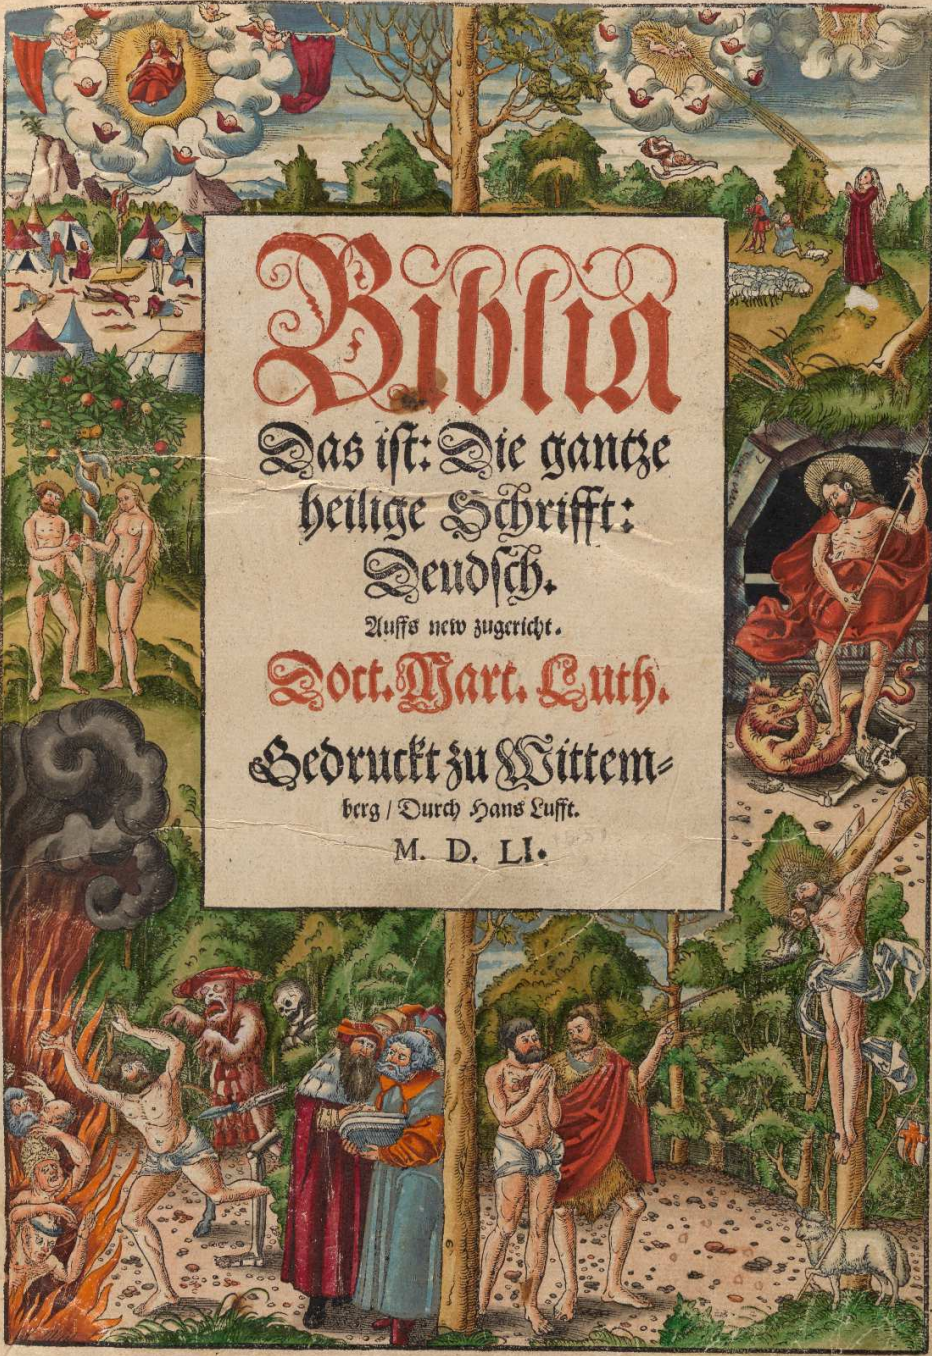 Biblia
Das ist: Die gantze
heilige Schrifft:
Deudsch.
Auffs new zugericht.
Doct. Mart. Luth.
Gedruckt zu Wittem-
berg / Durch Hans Lufft.
M. D. LI.